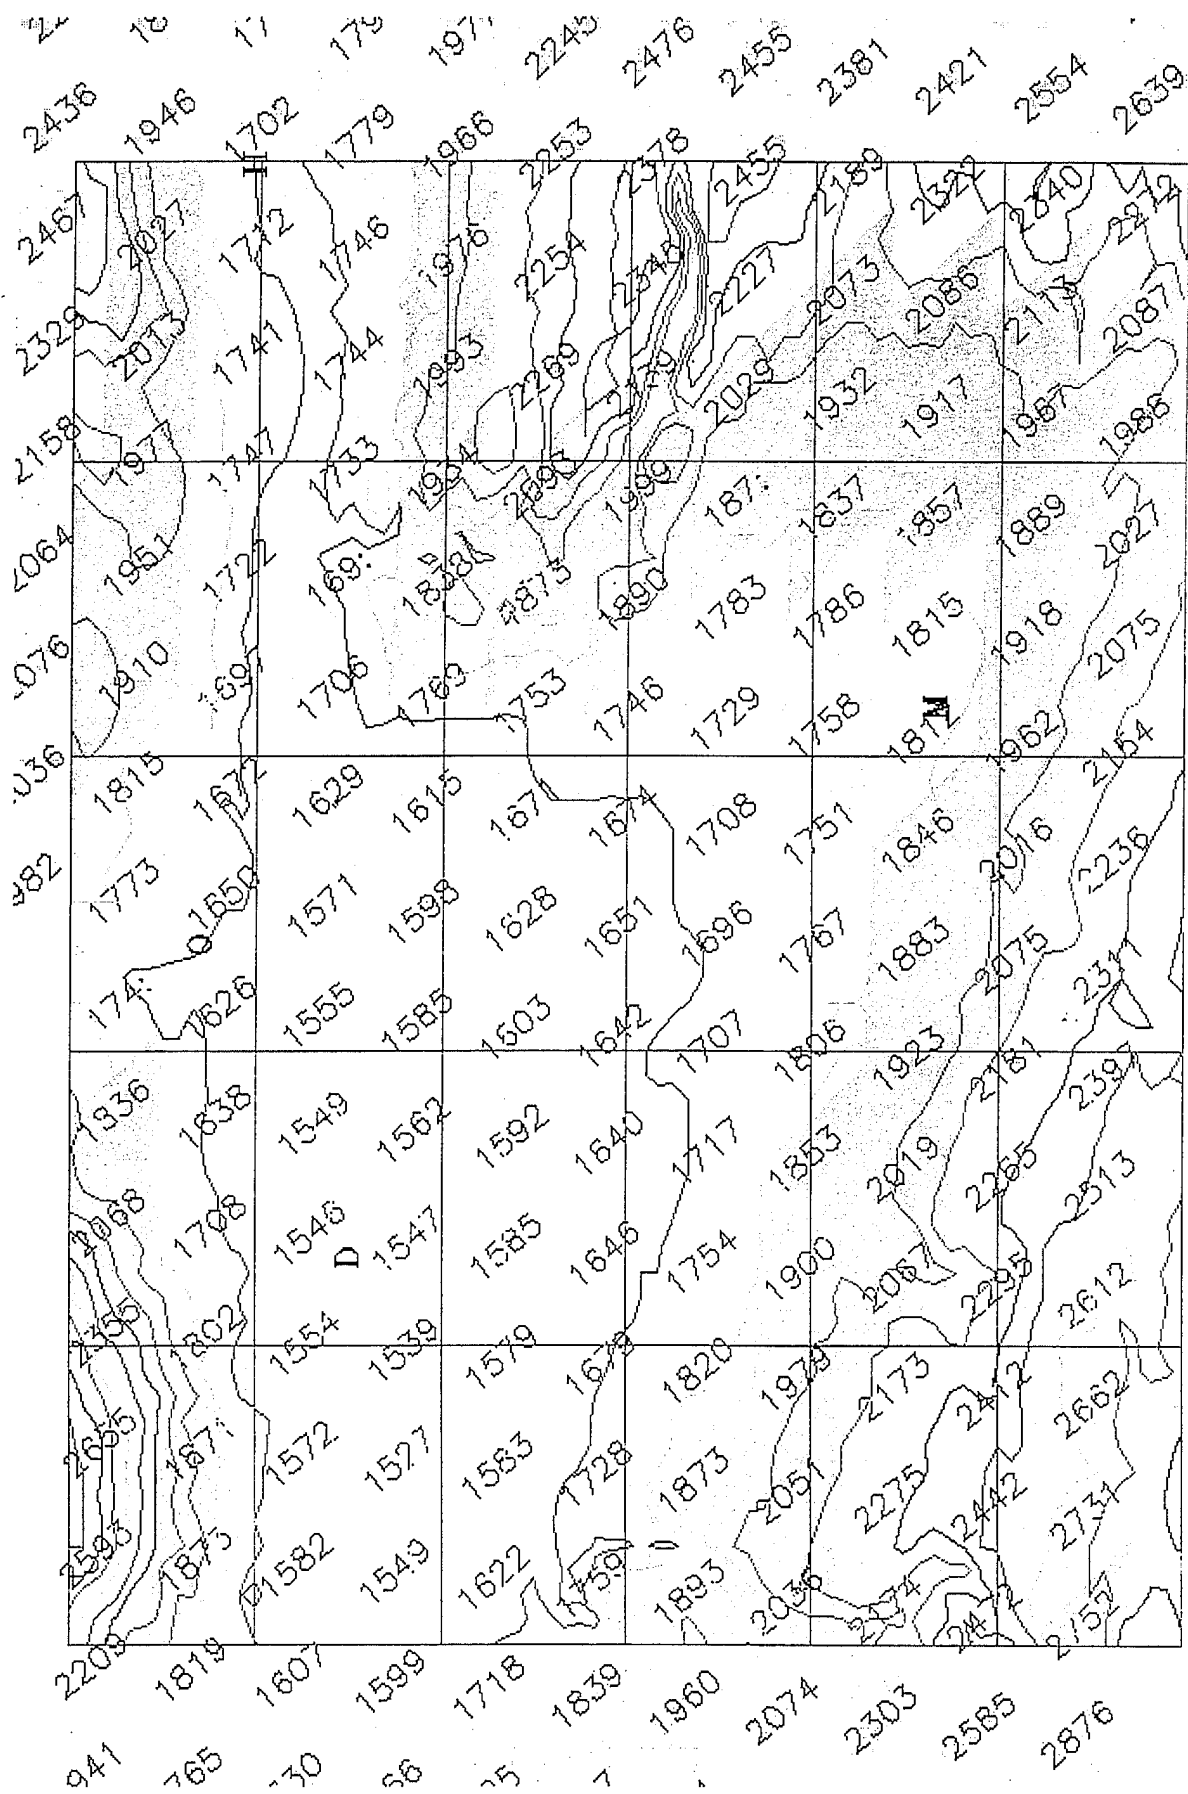 2476 2455 2381 2421 2554 2639
2436 1946 1702 1779 1966 2253 2378 2455 2189 2322 2340 2272
2467 2027 1712 1746 1976 2254 2346 2227 2073 2086 2113 2087
2329 2013 1741 1744 1993 2269 2029 1932 1917 1967 1986
2158 1977 1747 1733 1934 2093 1999 187 1837 1857 1889 2027
2064 1951 1722 169 1838 1873 1890 1783 1786 1815 1918 2075
076 1910 1697 1706 1769 1753 1746 1729 1758 1812 M 1962 2154
036 1815 1672 1629 1615 1671 1674 1708 1751 1846 2016 2236
982 1773 1650 1571 1598 1628 1651 1696 1767 1883 2075 2311
174 1626 1555 1585 1603 1642 1707 1806 1923 2181 2397
1836 1638 1549 1562 1592 1640 1717 1853 2019 2265 2513
2068 1708 1546 D 1547 1585 1646 1754 1900 2067 2295 2612
2355 1802 1554 1539 1579 1679 1820 1979 2173 2412 2662
2655 1871 1572 1527 1583 1728 1873 2051 2275 2442 2731
2593 1873 1582 1549 1622 1759 1893 2036 2174 2472 2752
2209 1819 1607 1599 1718 1839 1960 2074 2303 2585 2876
941 765